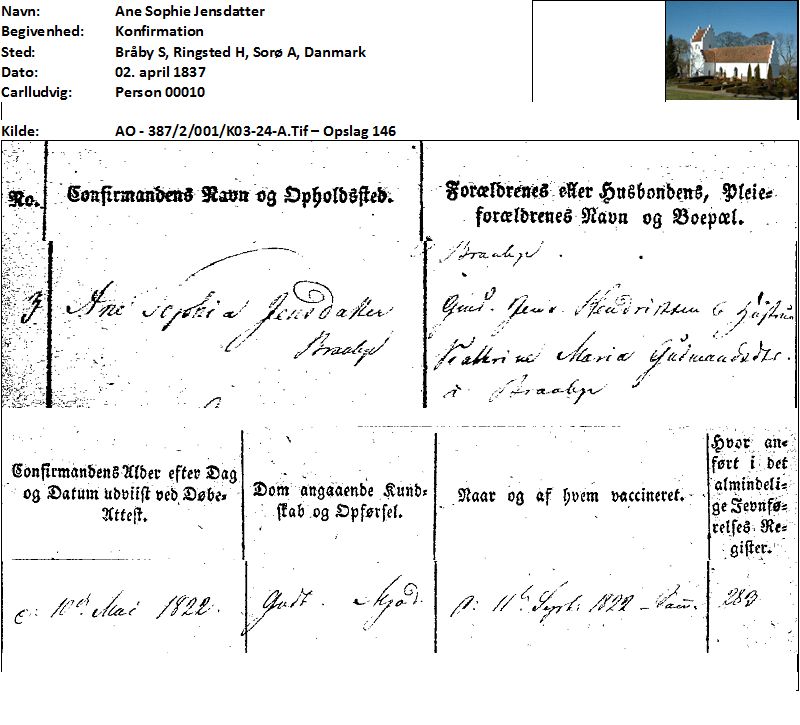 Navn: Ane Sophie Jensdatter
Begivenhed: Konfirmation
Sted: Bråby S, Ringsted H, Sorø A, Danmark
Dato: 02. april 1837
Carlludvig: Person 00010
Kilde: AO - 387/2/001/K03-24-A.Tif – Opslag 146
No.
Confirmandens Navn og Opholdssted.
Forældrenes eller Husbondens, Pleie-
forældrenes Navn og Boepæl.
Braabye
3
Ane Sophia Jensdatter
Braabye
Gmd. Jens Hendriksen & Hustru
Kathrine Maria Gudmandsdtr.
i Braabye
Confirmandens Alder efter Dag
og Datum udviist ved Døbe-
Attest.
Dom angaaende Kund-
skab og Opførsel.
Naar og af hvem vaccineret.
Hvor an-
ført i det
almindeli-
ge Jevnfø-
relses Re-
gister.
10de Mai 1822.
Godt.
11te Sept. 1822
283